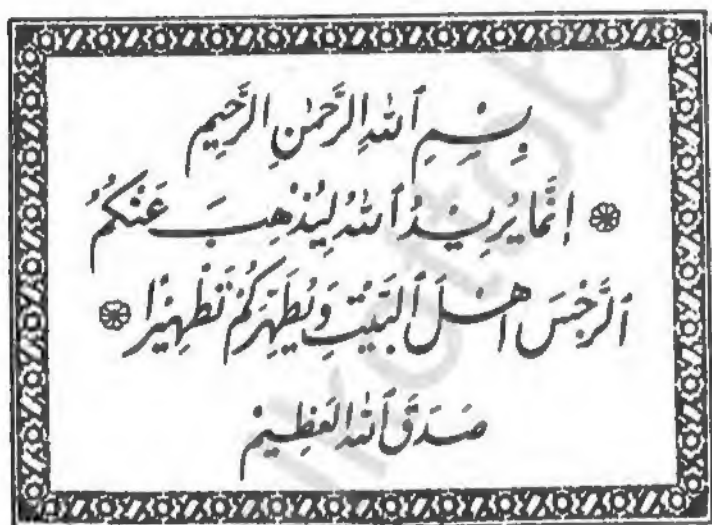 بِسْمِ ٱللهِ الرَّحْمٰنِ الرَّحِيمِ
❁ إِنَّمَا يُرِيْدُ ٱللهُ لِيُذْهِبَ عَنْكُمُ
ٱلرِّجْسَ اَهْلَ ٱلْبَيْتِ وَيُطَهِّرَكُمْ تَطْهِيْرًا ❁
صَدَقَ ٱللهُ العَظِيمْ